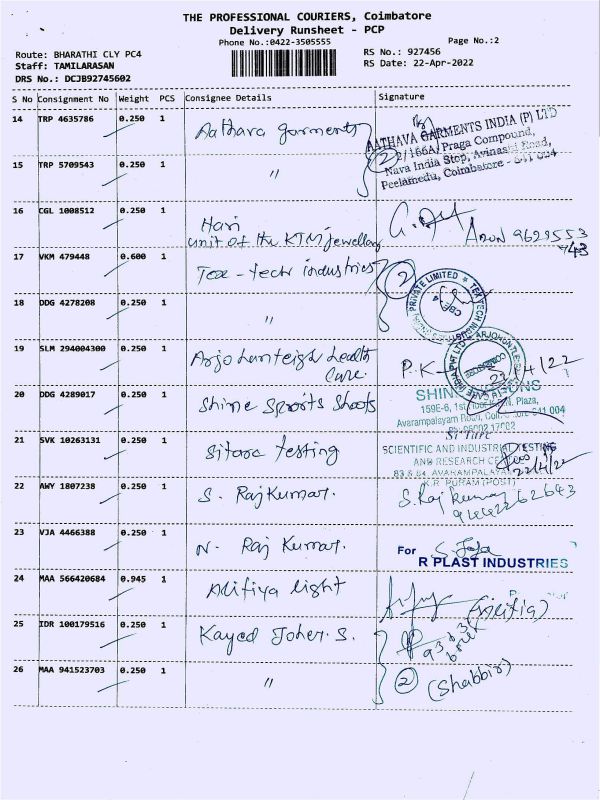 THE PROFESSIONAL COURIERS, Coimbatore
Delivery Runsheet - PCP
Phone No.:0422-3505555
Page No.:2
Route: BHARATHI CLY PC4
RS No.: 927456
Staff: TAMILARASAN
RS Date: 22-Apr-2022
DRS No.: DCJB92745602
S No Consignment No Weight PCS Consignee Details Signature
14 TRP 4635786 0.250 1 Aathava garments
AATHAVA GARMENTS INDIA (P) LTD
2/166A, Praga Compound,
Nava India Stop, Avinashi Road,
Peelamedu, Coimbatore - 641 004
15 TRP 5709543 0.250 1 "
2
16 CGL 1008512 0.250 1 Hari
unit of the KTM jewellery
9629553
43
17 VKM 479448 0.600 1 Tex-tech industries
2
TEX TECH INDUSTRIES
PRIVATE LIMITED
CBE
18 DDG 4278208 0.250 1 "
19 SLM 294004300 0.250 1 Arjo hunteigh health
Care.
P.K
22/4/22
20 DDG 4289017 0.250 1 Shine Sports Shoots
159E-6, 1st Floor, Plaza,
Avarampalayam Road, Coimbatore 641 004
21 SVK 10263131 0.250 1 Sitarc testing
SCIENTIFIC AND INDUSTRIAL TESTING
AND RESEARCH CENTRE
83 & 84, AVARAMPALAYAM
K.R. PURAM (POST)
22/4/22
22 AWY 1807238 0.250 1 S. RajKumar.
S. Raj kumar
9442262643
23 VJA 4466388 0.250 1 N. Raj Kumar.
For
R PLAST INDUSTRIES
24 MAA 566420684 0.945 1 Aditiya light
25 IDR 100179516 0.250 1 Kayed Joher. S.
26 MAA 941523703 0.250 1 "
2
(Shabbir)